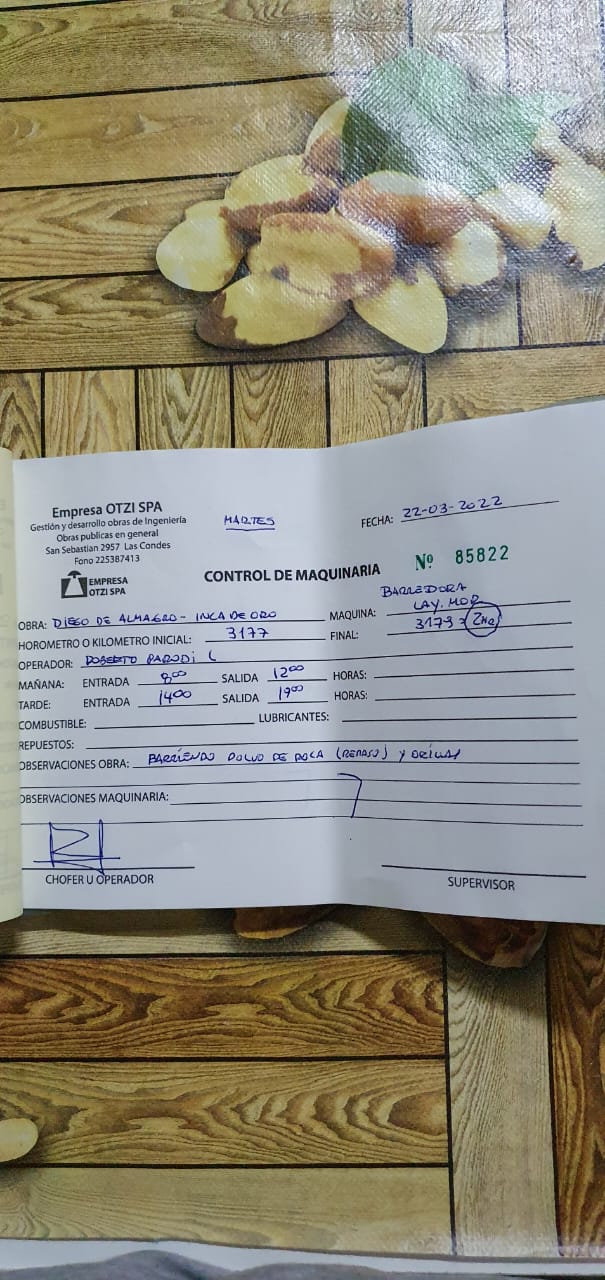 Empresa OTZI SPA
Gestión y desarrollo obras de Ingeniería
Obras publicas en general
San Sebastian 2957 Las Condes
Fono 225387413
EMPRESA
OTZI SPA
MARTES
FECHA: 22-03-2022
Nº 85822
CONTROL DE MAQUINARIA
OBRA: DIEGO DE ALMAGRO - INCA DE ORO
MAQUINA: BARREDORA
LAY. MOR
HOROMETRO O KILOMETRO INICIAL: 3177
FINAL: 3179 2HR
OPERADOR: ROBERTO PARODI L
MAÑANA: ENTRADA 8:00 SALIDA 12:00 HORAS:
TARDE: ENTRADA 14:00 SALIDA 19:00 HORAS:
COMBUSTIBLE: LUBRICANTES:
REPUESTOS:
OBSERVACIONES OBRA: BARRIENDO POLVO DE ROCA (REPASO) Y
OBSERVACIONES MAQUINARIA:
CHOFER U OPERADOR
SUPERVISOR